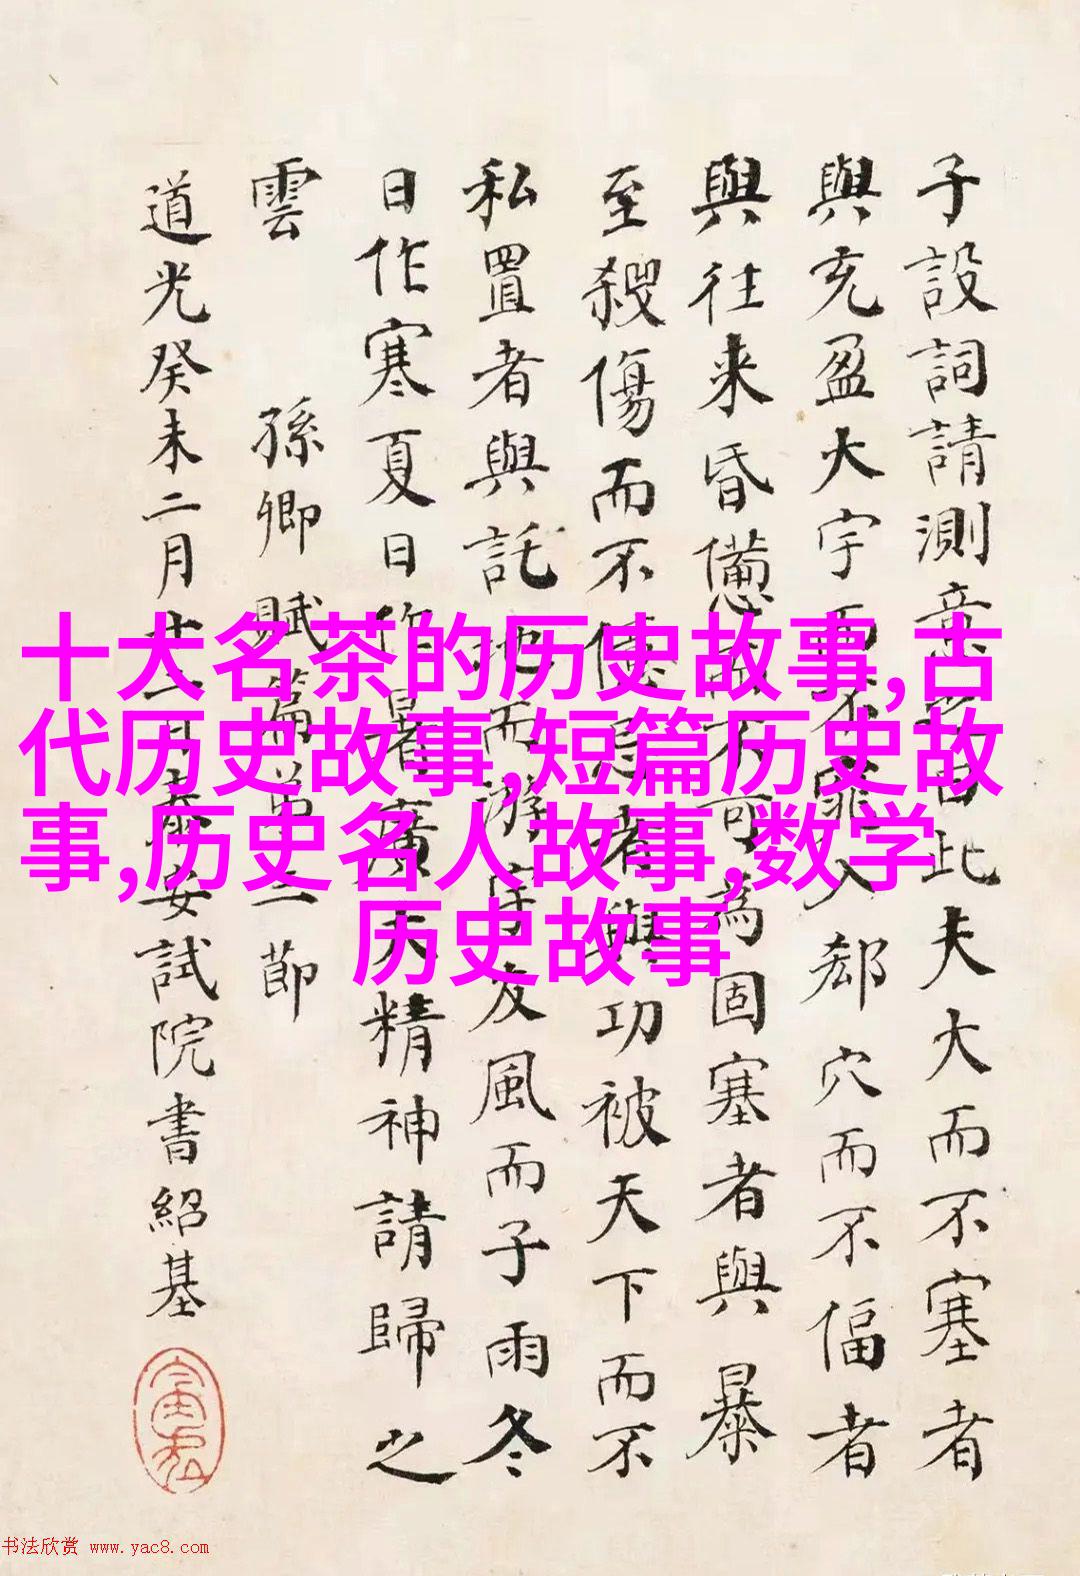 子設詞請測意曰此夫大而不塞者
與充盈大宇而不入郄穴而不偪者
與往来昏憊不可為固塞者與暴
至殺傷而不億者與功被天下而不
私置者與託地而游宇友風而子雨冬
日作寒夏日作暑廣大精神請歸之
雲 孫卿賦篇二節
道光癸未二月十一日泰安試院書紹基
十大名茶的历史故事,古
代历史故事,短篇历史故
事,历史名人故事,数学
历史故事
书法欣赏 www.yac8.com